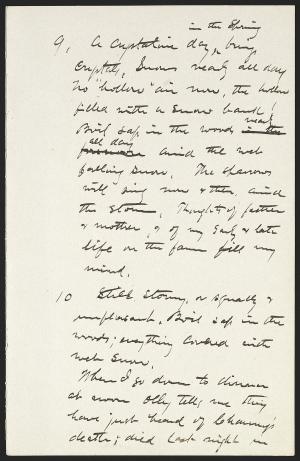 in the Spring
9, A crystaline day, being
crystals, Snows nearly all day
No "hollow" air now, the hollow
filled with a snow bank!
Boil sap, in the woods nearly
all day
amid the wet
falling snow. The sparrows
will sing now & then, amid
the storm, Thoughts of father
& mother, & of my early & late
life on the farm fill my
mind.
10 Still stormy, or squally &
unpleasant, Boil sap in the
woods; everything covered with
wet snow.
When I go down to dinner
at noon Olly tells me they
have just heard of Channy's
death; died last night in